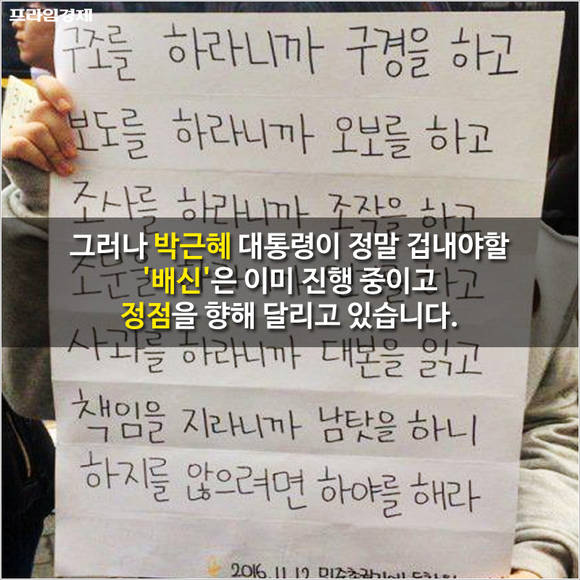 프라임경제
구조를 하라니까 구경을 하고
보도를 하라니까 오보를 하고
조사를 하라니까 조작을 하고
그러나 박근혜 대통령이 정말 겁내야할
'배신'은 이미 진행 중이고
정점을 향해 달리고 있습니다.
사과를 하라니까 대본을 읽고
책임을 지라니까 남탓을 하니
하지를 않으려면 하야를 해라
2016.11.12